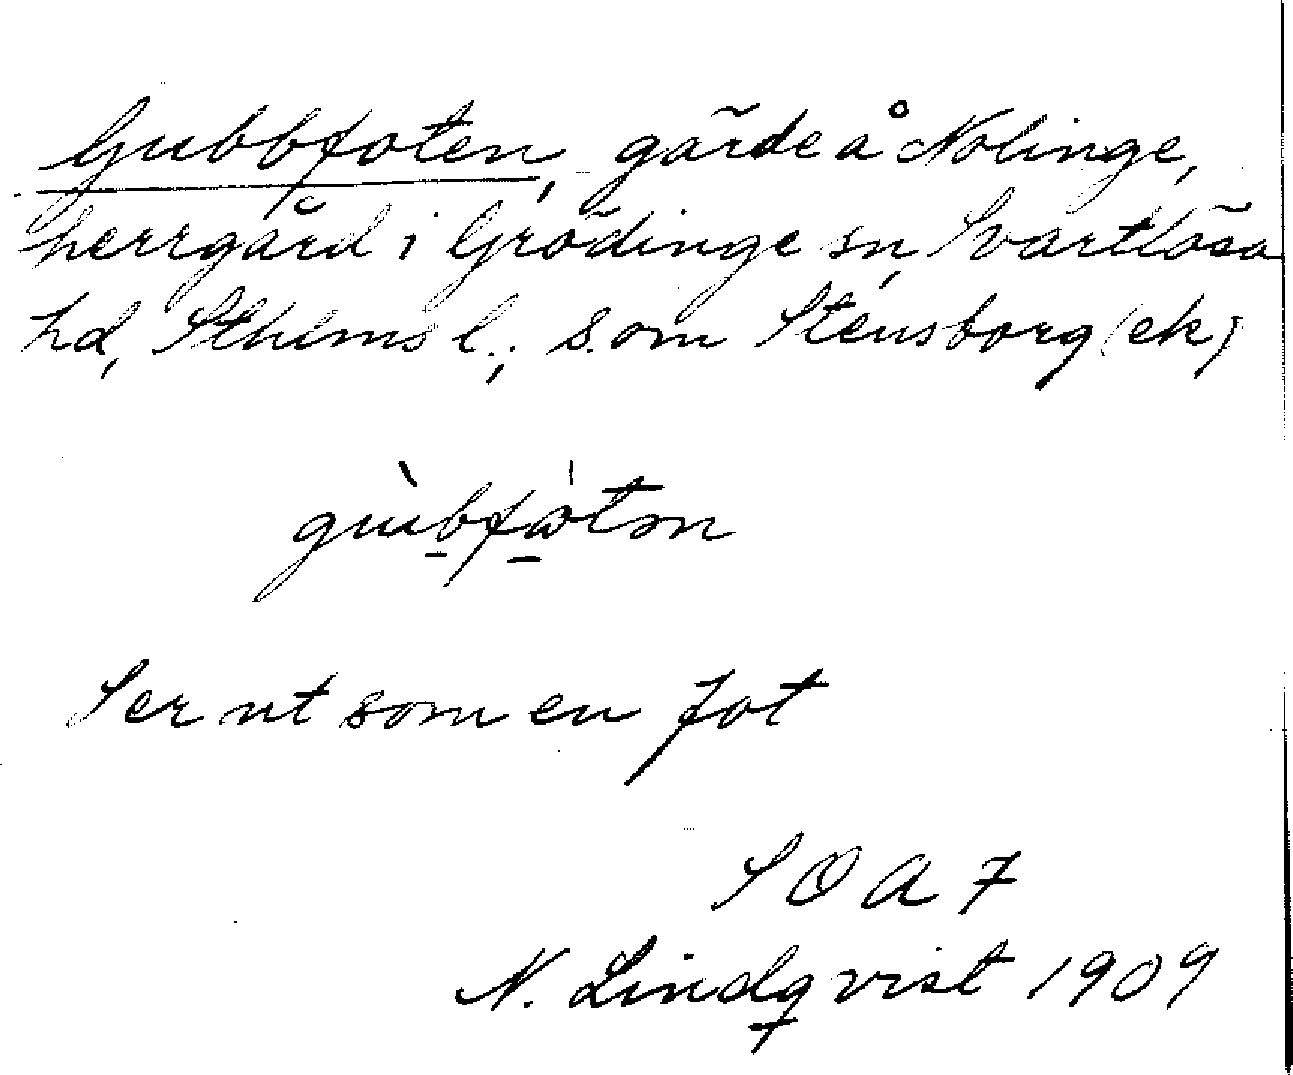 Gubbfoten, gärde å Nolinge,
herrgård i Grödinge sn, Svartlösa
hd, Sthlms l.; s. om Stensborg (ek)
Ser ut som en fot
SOAF
N. Lindqvist 1909